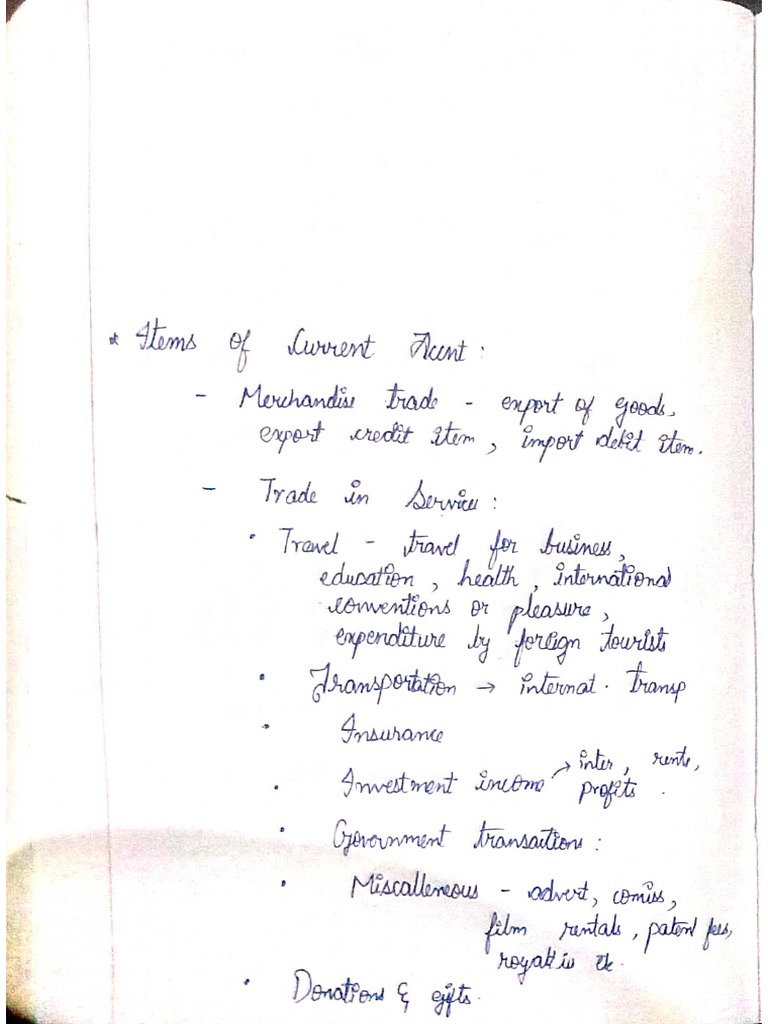 * Items of Current Acunt :
- Merchandise trade - export of goods,
export credit item, import debit item.
- Trade in Service :
• Travel - travel for business,
education, health, international
conventions or pleasure,
expenditure by foreign tourists
• Transportation → internat. transp
• Insurance
• Investment income → inter, rents,
profits.
• Government transactions :
• Miscalleneous - advert, comiss,
film rentals, patent fees,
royalties etc.
• Donations & gifts.